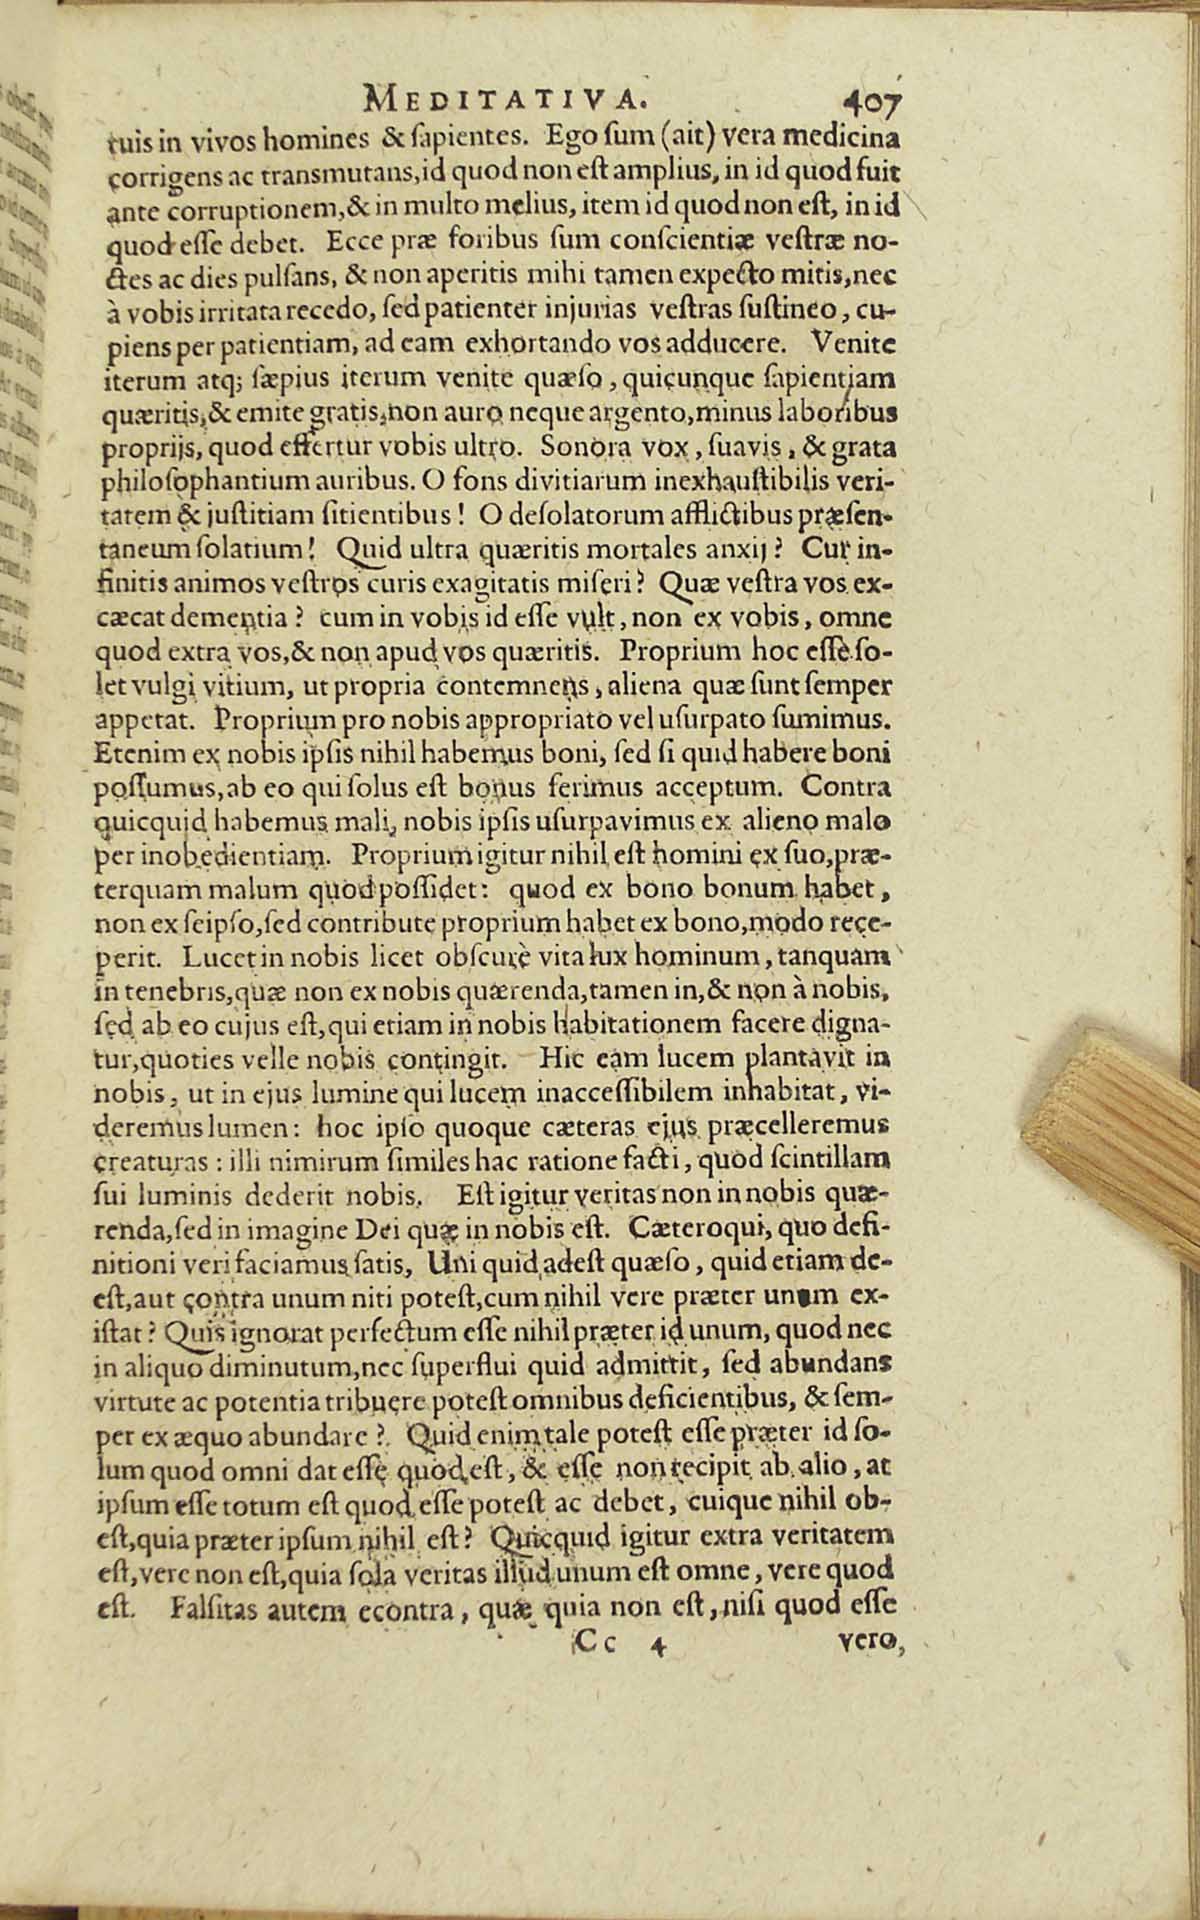 MEDITATIVA. 407
tuis in vivos homines & sapientes. Ego sum (ait) vera medicina
corrigens ac transmutans, id quod non est amplius, in id quod fuit
ante corruptionem, & in multo melius, item id quod non est, in id
quod esse debet. Ecce præ foribus sum conscientiæ vestræ no-
ctes ac dies pulsans, & non aperitis mihi tamen expecto mitis, nec
à vobis irritata recedo, sed patienter injurias vestras sustineo, cu-
piens per patientiam, ad eam exhortando vos adducere. Venite
iterum atq; sæpius iterum venite quæso, quicunque sapientiam
quæritis, & emite gratis, non auro neque argento, minus laboribus
proprijs, quod effertur vobis ultro. Sonora vox, suavis, & grata
philosophantium auribus. O fons divitiarum inexhaustibilis veri-
tatem & justitiam sitientibus! O desolatorum afflictibus præsen-
taneum solatium! Quid ultra quæritis mortales anxij? Cur in-
finitis animos vestros curis exagitatis miseri? Quæ vestra vos ex-
cæcat dementia? cum in vobis id esse vult, non ex vobis, omne
quod extra vos, & non apud vos quæritis. Proprium hoc esse so-
let vulgi vitium, ut propria contemnens, aliena quæ sunt semper
appetat. Proprium pro nobis appropriato vel usurpato sumimus.
Etenim ex nobis ipsis nihil habemus boni, sed si quid habere boni
possumus, ab eo qui solus est bonus ferimus acceptum. Contra
quicquid habemus mali, nobis ipsis usurpavimus ex alieno malo
per inobedientiam. Proprium igitur nihil est homini ex suo, præ-
terquam malum quod possidet: quod ex bono bonum habet,
non ex seipso, sed contribute proprium habet ex bono, modo rece-
perit. Lucet in nobis licet obscurè vita lux hominum, tanquam
in tenebris, quæ non ex nobis quærenda, tamen in, & non à nobis,
sed ab eo cujus est, qui etiam in nobis habitationem facere digna-
tur, quoties velle nobis contingit. Hic eam lucem plantavit in
nobis, ut in ejus lumine qui lucem inaccessibilem inhabitat, vi-
deremus lumen: hoc ipso quoque cæteras ejus præcelleremus
creaturas: illi nimirum similes hac ratione facti, quod scintillam
sui luminis dederit nobis. Est igitur veritas non in nobis quæ-
renda, sed in imagine Dei quæ in nobis est. Cæteroqui, quo defi-
nitioni veri faciamus satis, Uni quid adest quæso, quid etiam de-
est, aut contra unum niti potest, cum nihil vere præter unum ex-
istat? Quis ignorat perfectum esse nihil præter id unum, quod nec
in aliquo diminutum, nec superflui quid admittit, sed abundans
virtute ac potentia tribuere potest omnibus deficientibus, & sem-
per ex æquo abundare? Quid enim tale potest esse præter id so-
lum quod omni dat esse quod est, & esse non recipit ab alio, at
ipsum esse totum est quod esse potest ac debet, cuique nihil ob-
est, quia præter ipsum nihil est? Quicquid igitur extra veritatem
est, vere non est, quia sola veritas illud unum est omne, vere quod
est. Falsitas autem econtra, quæ quia non est, nisi quod esse
Cc 4 vero,